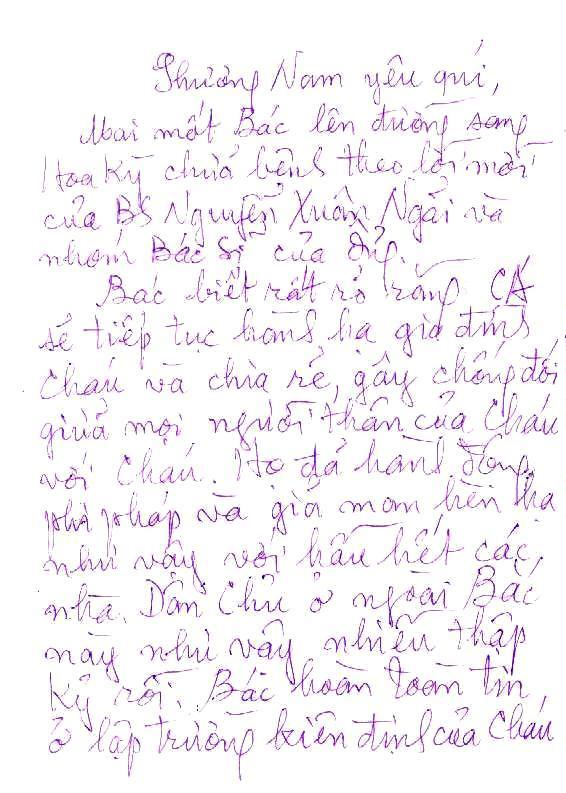 Phương Nam yêu quí,
Mai mốt Bác lên đường sang
Hoa Kỳ chữa bệnh theo lời mời
của BS Nguyễn Xuân Ngãi và
nhóm Bác Sĩ của
Bác biết rất rõ rằng CA
sẽ tiếp tục hành hạ gia đình
Cháu và chia rẽ, gây chống đối
giữa mọi người thân của Cháu
với Cháu. Họ đã hành động
phi pháp và gia man hèn hạ
như vậy với hầu hết các
nhà Dân Chủ ở ngoài Bắc
này như vậy nhiều thập
kỷ rồi. Bác hoàn toàn tin
ở lập trường kiên định của Cháu